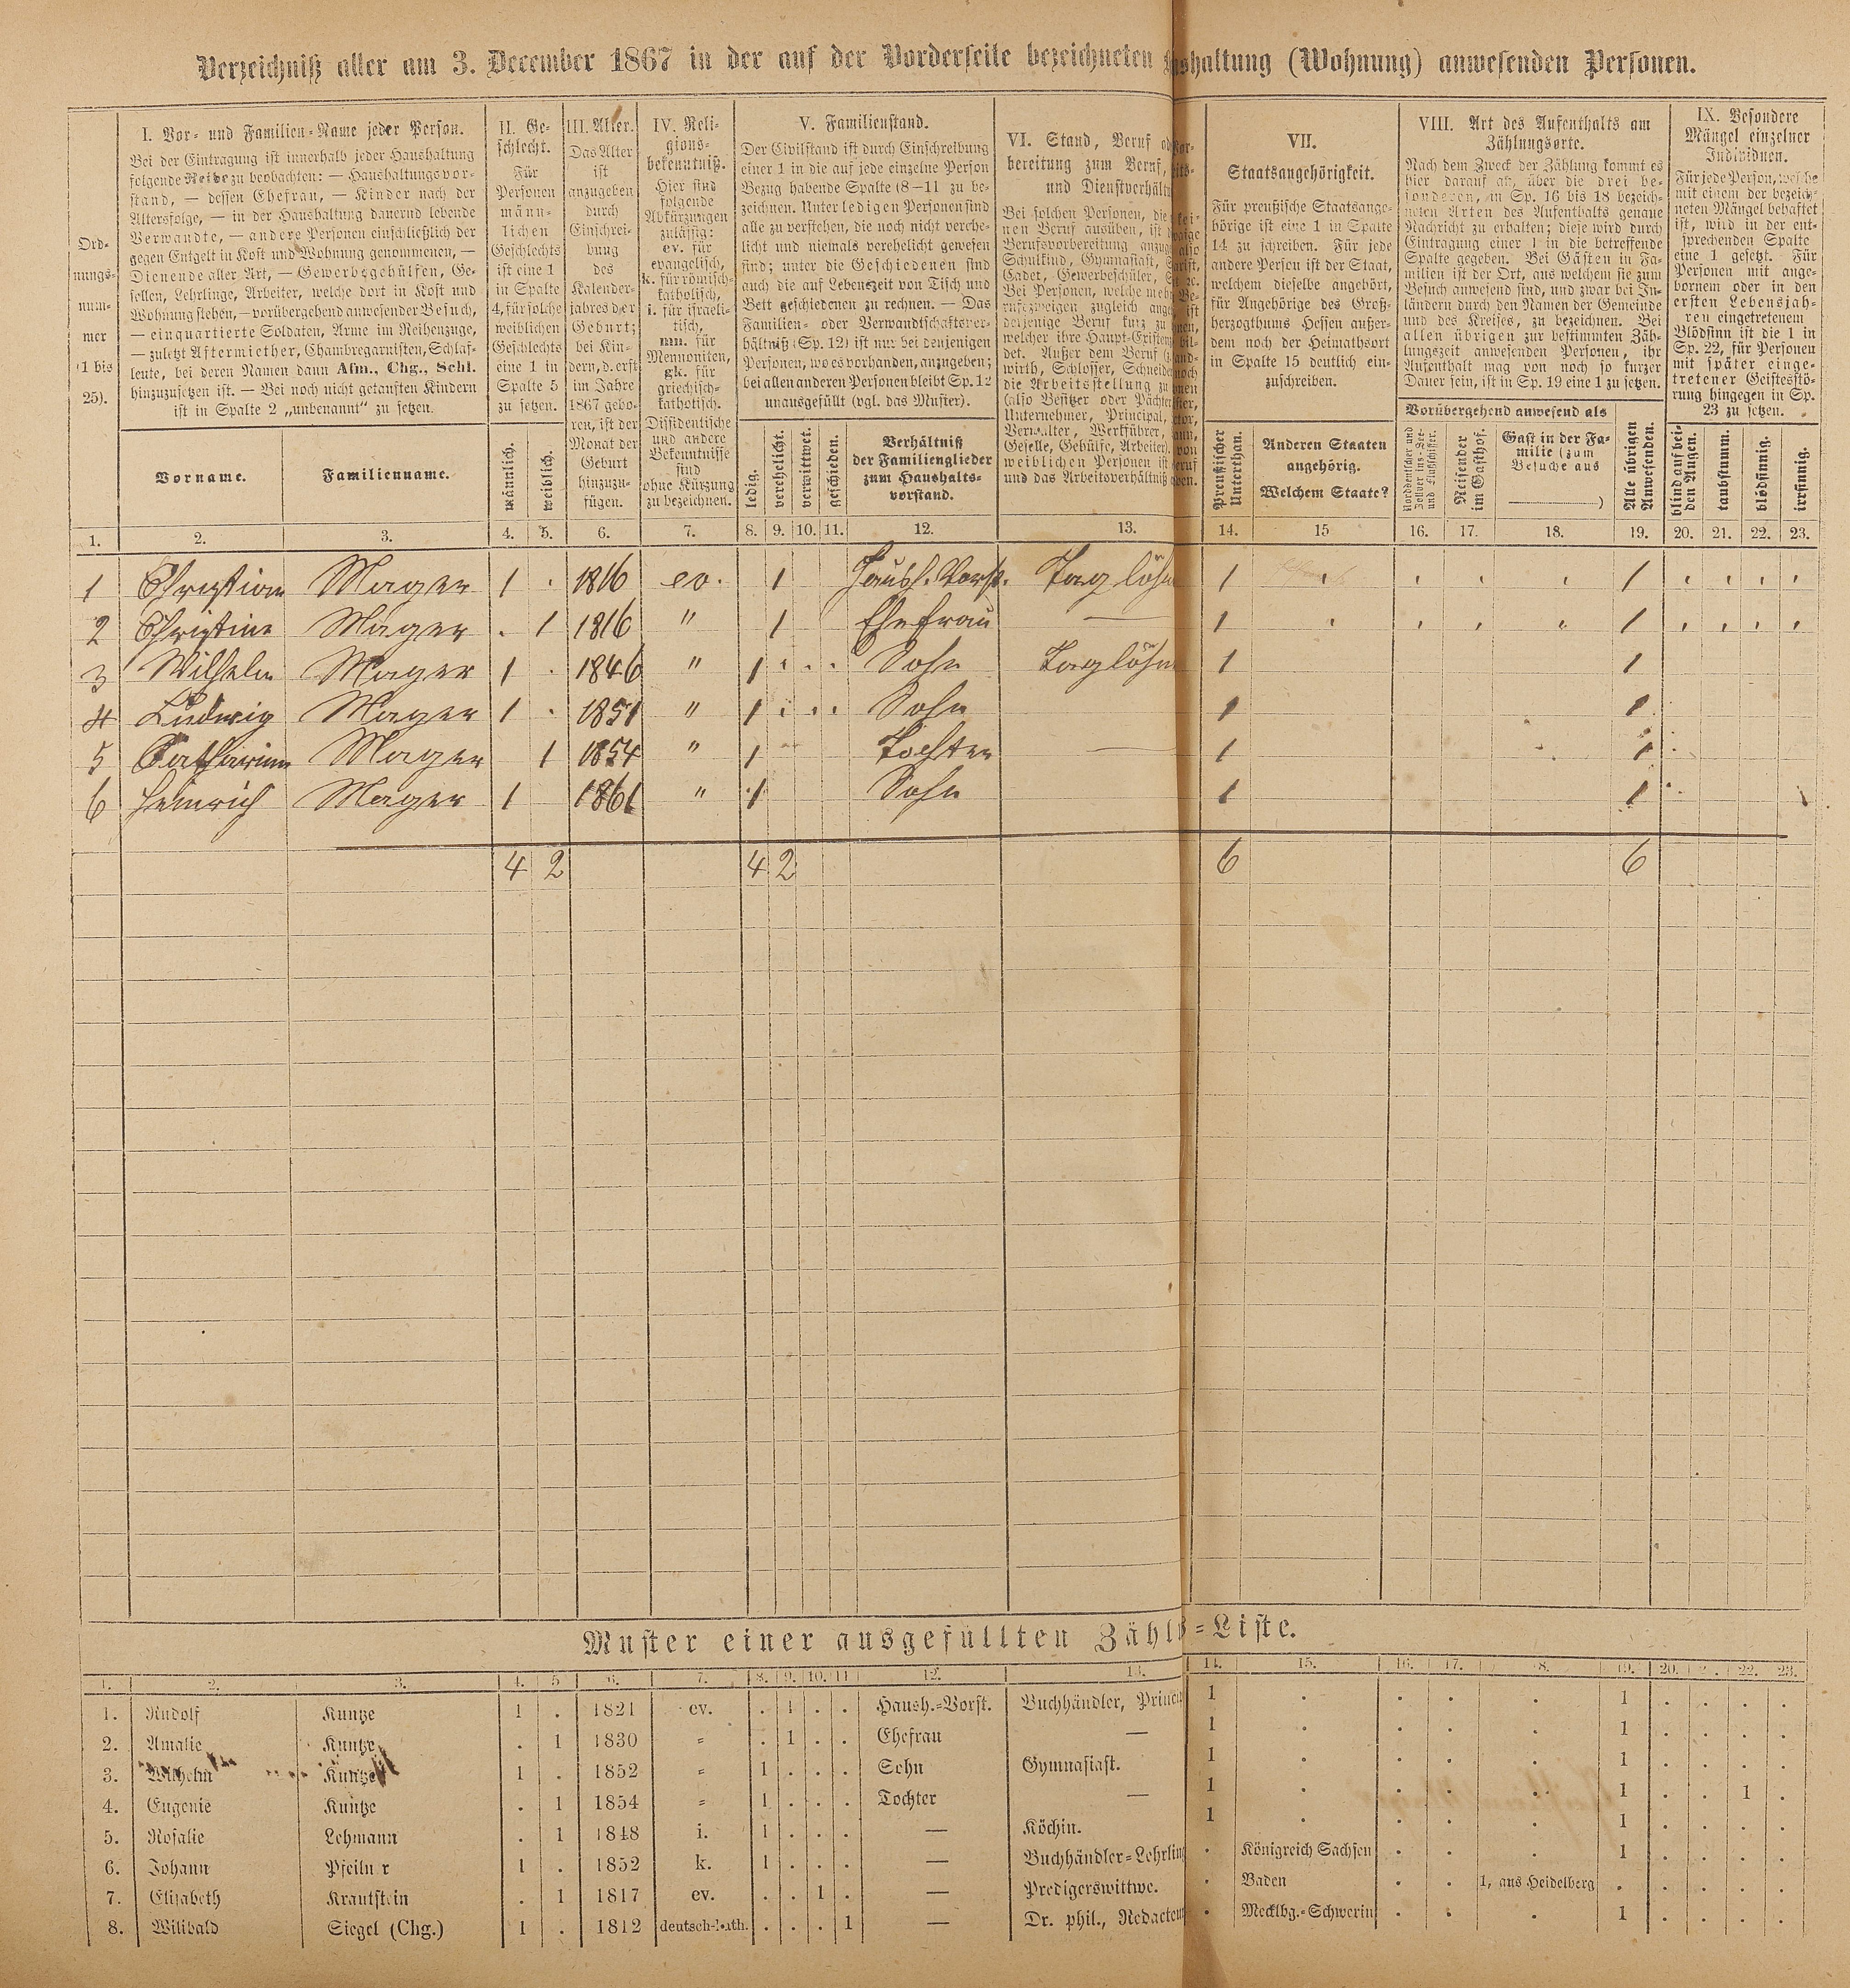 Verzeichniß aller am 3. December 1867 in der auf der Vorderseite bezeichneten shaltung (Wohnung) anwesenden Personen.
Ord-
nungs-
num-
mer
(1 bis
25).
I. Vor- und Familien-Name jeder Person.
Bei der Eintragung ist innerhalb jeder Haushaltung
folgende Reihe zu beobachten: — Haushaltungsvor-
stand, — dessen Ehefrau, — Kinder nach der
Altersfolge, — in der Haushaltung dauernd lebende
Verwandte, — andere Personen einschließlich der
gegen Entgelt in Kost und Wohnung genommenen, —
Dienende aller Art, — Gewerbsgehülfen, Ge-
sellen, Lehrlinge, Arbeiter, welche dort in Kost und
Wohnung stehen, — vorübergehend anwesender Besuch,
— einquartierte Soldaten, Arme im Reihenzuge,
— zuletzt Aftermiether, Chambregarnisten, Schlaf-
leute, bei deren Namen dann Afm., Chg., Schl.
hinzuzusetzen ist. — Bei noch nicht getauften Kindern
ist in Spalte 2 „unbenannt" zu setzen.
Vorname.
Familienname.
II. Ge-
schlecht.
Für
Personen
männ-
lichen
Geschlechts
ist eine 1
in Spalte
4, für solche
weiblichen
Geschlechts
eine 1 in
Spalte 5
zu setzen.
männlich.
weiblich.
III. Alter.
Das Alter
ist
anzugeben
durch
Einschrei-
bung
des
Kalender-
jahres der
Geburt;
bei Kin-
dern, d. erst
im Jahre
1867 gebo-
ren, ist der
Monat der
Geburt
hinzuzu-
fügen.
IV. Reli-
gions-
bekenntniß.
Hier sind
folgende
Abkürzungen
zulässig:
ev. für
evangelisch,
k. für römisch-
katholisch,
i. für israeli-
tisch,
mn. für
Mennoniten,
gk. für
griechisch-
katholisch.
Dissidentische
und andere
Bekenntnisse
sind
ohne Kürzung
zu bezeichnen.
V. Familienstand.
Der Civilstand ist durch Einschreibung
einer 1 in die auf jede einzelne Person
Bezug habende Spalte (8—11 zu be-
zeichnen. Unter ledigen Personen sind
alle zu verstehen, die noch nicht verehe-
licht und niemals verehelicht gewesen
sind; unter die Geschiedenen sind
auch die auf Lebenszeit von Tisch und
Bett geschiedenen zu rechnen. — Das
Familien- oder Verwandtschaftsver-
hältniß (Sp. 12) ist nur bei denjenigen
Personen, wo es vorhanden, anzugeben;
bei allen anderen Personen bleibt Sp. 12
unausgefüllt (vgl. das Muster).
ledig.
verehelicht.
verwittwet.
geschieden.
Verhältniß
der Familienglieder
zum Haushalts-
vorstand.
VI. Stand, Beruf
bereitung zum Beruf,
und Dienstverhält
Bei solchen Personen, die
nen Beruf ausüben, ist
Berufsvorbereitung
Schulkind, Gymnasiast,
Cadet, Gewerbeschüler,
Bei Personen, welche
rufszweigen zugleich
derjenige Beruf kurz zu
welcher ihre Haupt-Existenz
det. Außer dem Beruf
wirth, Schlosser, Schneider
die Arbeitsstellung zu
(also Besitzer oder Pächter
Unternehmer, Principal,
Verwalter, Werkführer,
Geselle, Gehülfe, Arbeiter).
weiblichen Personen ist
und das Arbeitsverhältniß
VII.
Staatsangehörigkeit.
Für preußische Staatsange-
hörige ist eine 1 in Spalte
14 zu schreiben. Für jede
andere Person ist der Staat,
welchem dieselbe angehört,
für Angehörige des Groß-
herzogthums Hessen außer-
dem noch der Heimathsort
in Spalte 15 deutlich ein-
zuschreiben.
Preußischer
Unterthan.
Anderen Staaten
angehörig.
Welchem Staate?
VIII. Art des Aufenthalts am
Zählungsorte.
Nach dem Zweck der Zählung kommt es
hier darauf an, über die drei be-
sonderen, in Sp. 16 bis 18 bezeich-
neten Arten des Aufenthalts genaue
Nachricht zu erhalten; diese wird durch
Eintragung einer 1 in die betreffende
Spalte gegeben. Bei Gästen in Fa-
milien ist der Ort, aus welchem sie zum
Besuch anwesend sind, und zwar bei In-
ländern durch den Namen der Gemeinde
und des Kreises, zu bezeichnen. Bei
allen übrigen zur bestimmten Zäh-
lungszeit anwesenden Personen, ihr
Aufenthalt mag von noch so kurzer
Dauer sein, ist in Sp. 19 eine 1 zu setzen.
Vorübergehend anwesend als
Norddeutscher und
Zollver.ins-See-
und Flußschiffer.
Reisender
im Gasthof.
Gast in der Fa-
milie (zum
Besuche aus
)
Alle übrigen
Anwesenden.
IX. Besondere
Mängel einzelner
Individuen.
Für jede Person, welche
mit einem der bezeich-
neten Mängel behaftet
ist, wird in der ent-
sprechenden Spalte
eine 1 gesetzt. Für
Personen mit ange-
bornem oder in den
ersten Lebensjah-
ren eingetretenem
Blödsinn ist die 1 in
Sp. 22, für Personen
mit später einge-
tretener Geistesstö-
rung hingegen in Sp.
23 zu setzen.
blind auf bei-
den Augen.
taubstumm.
blödsinnig.
irrsinnig.
1. 2. 3. 4. 5. 6. 7. 8. 9. 10. 11. 12. 13. 14. 15 16. 17. 18. 19. 20. 21. 22. 23.
1 Christian Mager 1 . 1816 ev. 1 Haush. Vorst. Taglöhn 1 1
2 Christine Mager . 1 1816 " 1 Ehefrau — 1 1
3 Wilhelm Mager 1 . 1846 " 1 . . . Sohn Taglöhn 1 1
4 Ludwig Mager 1 . 1851 " 1 . . . Sohn 1 1
5 Catharina Mager 1 1854 " 1 Tochter — 1 1
6 Heinrich Mager 1 1861 " 1 Sohn 1 1
4 2 4 2 6 6
Muster einer ausgefüllten Zähl=Liste.
1. 2. 3. 4. 5 6. 7. 8. 9. 10. 11 12. 13. 14. 15. 16. 17. 18. 19. 20. 2. 22. 23.
1. Rudolf Kuntze 1 . 1821 ev. . 1 . . Haush.=Vorst. Buchhändler, Princi 1 . . . . 1 . . . .
2. Amalie Kuntze . 1 1830 = . 1 . . Ehefrau — 1 . . . . 1 . . . .
3. Wilhelm Kuntze 1 . 1852 = 1 . . . Sohn Gymnasiast. 1 . . . . 1 . . . .
4. Eugenie Kuntze . 1 1854 = 1 . . . Tochter — 1 . . . . 1 . . 1 .
5. Rosalie Lehmann . 1 1848 i. 1 . . . — Köchin. 1 . . . . 1 . . . .
6. Johann Pfeiln r 1 . 1852 k. 1 . . . — Buchhändler=Lehrling . Königreich Sachsen . . . 1 . . . .
7. Elisabeth Krautstein . 1 1817 ev. . . 1 . — Predigerswittwe. . Baden . . 1, aus Heidelberg . . . . .
8. Wilibald Siegel (Chg.) 1 . 1812 deutsch-kath. . . . 1 — Dr. phil., Redacteur . Mecklbg.=Schwerin . . . 1 . . . .